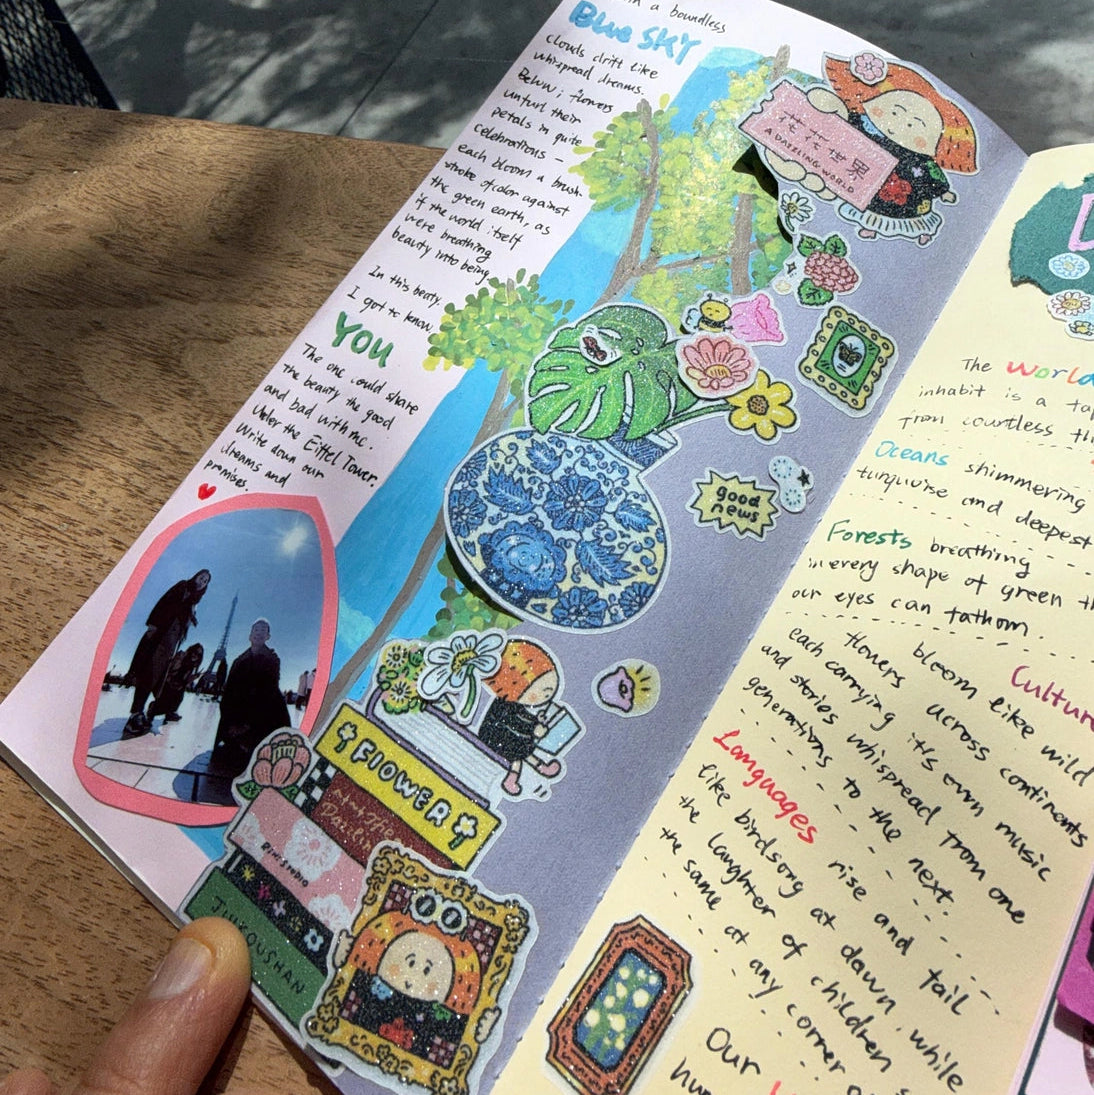 in a boundless
Blue SKY
clouds drift like
whispread dreams.
Below; flowers
unfurl their
petals in quite
celebrations -
each bloom a brush-
stroke of color against
the green earth, as
if the world itself
were breathing
beauty into being
In this beaty.
I got to know
You
The one could share
the beauty the good
and bad with me.
Under the Eiffel Tower.
Write down our
dreams and
promises.
花花世界
A DAZZLING WORLD
good
news
FlOWER
JIUKOUSHAN
The world
inhabit is a
from countless
Oceans shimmering
turquoise and deepest
Forests breathing
in every shape of green
our eyes can fathom.
flowers bloom like wild
Culture
each carrying it's own music
across continents
and stories whispread from one
generations to the next.
Languages rise and tail
like birdsong at dawn, while
the laughter of children
the same at any corner
Our